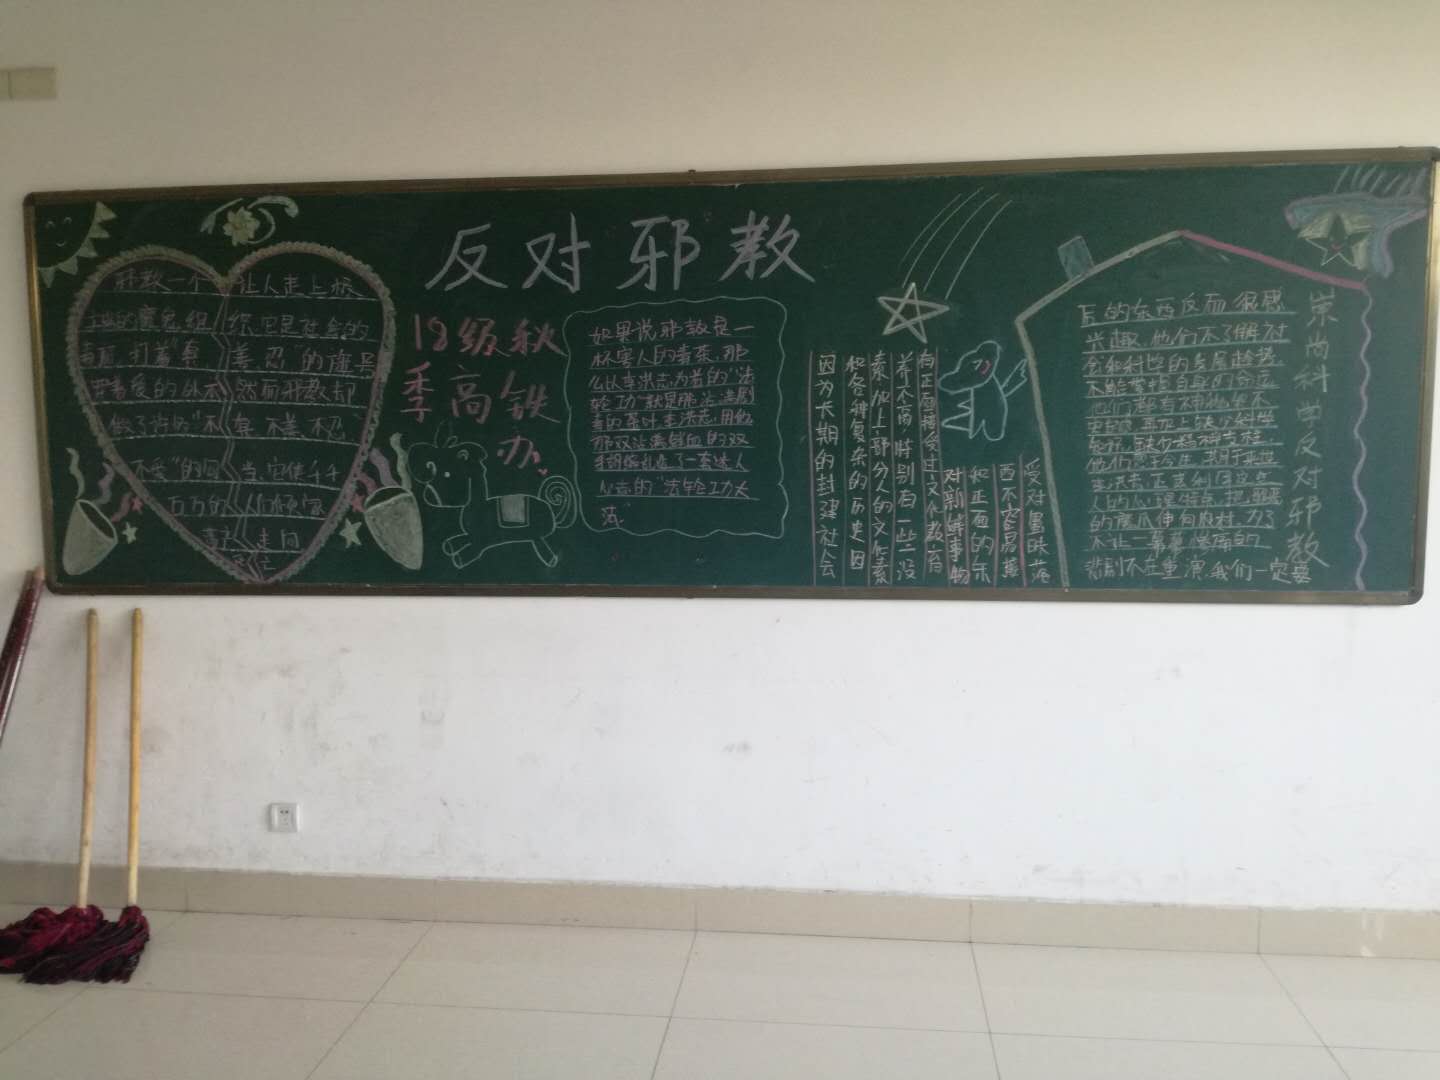 反对邪教
18级秋
季高铁
办
邪教一个让人走上极
的魔鬼组织,它是社会的
毒瘤,打着“真善忍”的旗号
带着爱的外衣然而邪教却
做了许的“不真不善不忍
不爱”的回当,它使千千
万万的人们倾家
荡产走向
死亡
如果说邪教是一
杯害人的毒茶,那
么以李洪志为首的“法
轮功”就是那沾满剧
毒的茶叶,李洪志,用他
那双沾满鲜血的双
手胡编乱造了一套迷人
心志的“法轮功大
法”
因为长期的封建社会
和各种复杂的历史因
素,加上部分人的文化素
养不高,特别有一些没
有正面接受过文化教育
对新鲜事物
和正面的东
西不容易接
受对量的落
后的东西反而很感
兴趣,他们不了解社
会和科学的发展趋势,
不能掌握自身的命运
他们
的人的心理特点,把罪恶
的魔爪伸向农村,为了
不让一幕幕惨痛的
悲剧不在重演,我们一定要
崇尚科学反对邪教